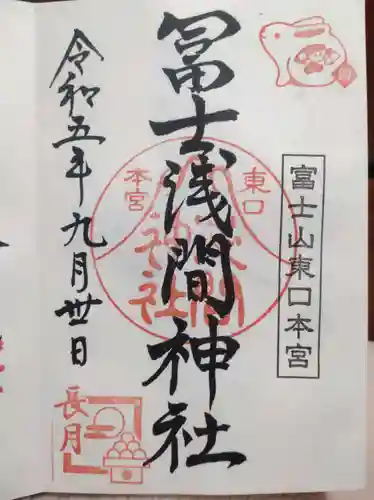 富士山東口本宮
冨士浅間神社
東口
本宮
浅間
神社
令和五年九月卅日
長月